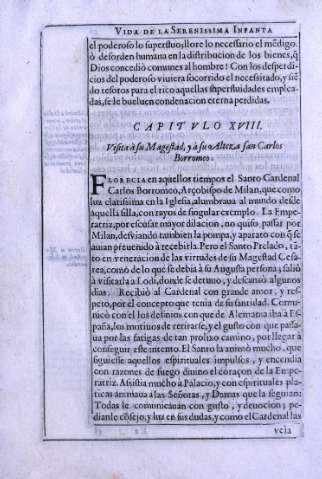 VIDA DE LA SERENISSIMA INFANTA
el poderoso lo superfluo, llore lo necessario el mẽdigo.
ò desorden humana en la distribucion de los bienes, q̃
Dios concediò comunes al hombre! Con los desperdi-
cios del poderoso viviera socorrido el necessitado, y siẽ-
do tesoros para el rico aquellas superfluidades emplica-
das, se le bueluen condenacion eterna perdidas.
CAPITVLO XVIII.
Visita à su Magestad, y à su Alteza san Carlos
Borromeo.
FLORECIA en aquellos tiempos el Santo Cardenal
Carlos Borromeo, Arçobispo de Milan, que como
luz clarissima en la Iglesia, alumbraua al mundo desde
aquella silla, con rayos de singular exemplo. La Empe-
ratriz, por escusar mayor dilacion, no quiso passar por
Milan, desviando tambien la pompa, y aparato con q̃ se
auian preuenido à recebirla. Pero el Santo Prelado, tã-
to en veneracion de las virtudes de su Magestad Cesa-
rea, como de lo que se debia à su Augusta persona; saliò
à visitarla à Lodi, donde se detuuo, y descansò algunos
dias. Recibiò al Cardenal con grande amor, y res-
peto, por el concepto que tenia de su santidad. Comu-
nicò con el los desinios con que de Alemania iba à Es-
paña, los motiuos de retirarse, y el gusto con que passa-
ua por las fatigas de tan prolixo camino, por llegar à
conseguir este intento. El Santo la animò mucho, que
siguiesse aquellos espirituales impulsos, y encendia
con razones de fuego diuino el coraçon de la Empe-
ratriz. Asistia mucho à Palacio, y con espirituales pla-
ticas animaua à las Señoras, y Damas que la seguian:
Todas le comunicauan con gusto, y deuocion; pe-
dianle cõsejo, y luz en sus dudas, y como el Cardenal las
veia